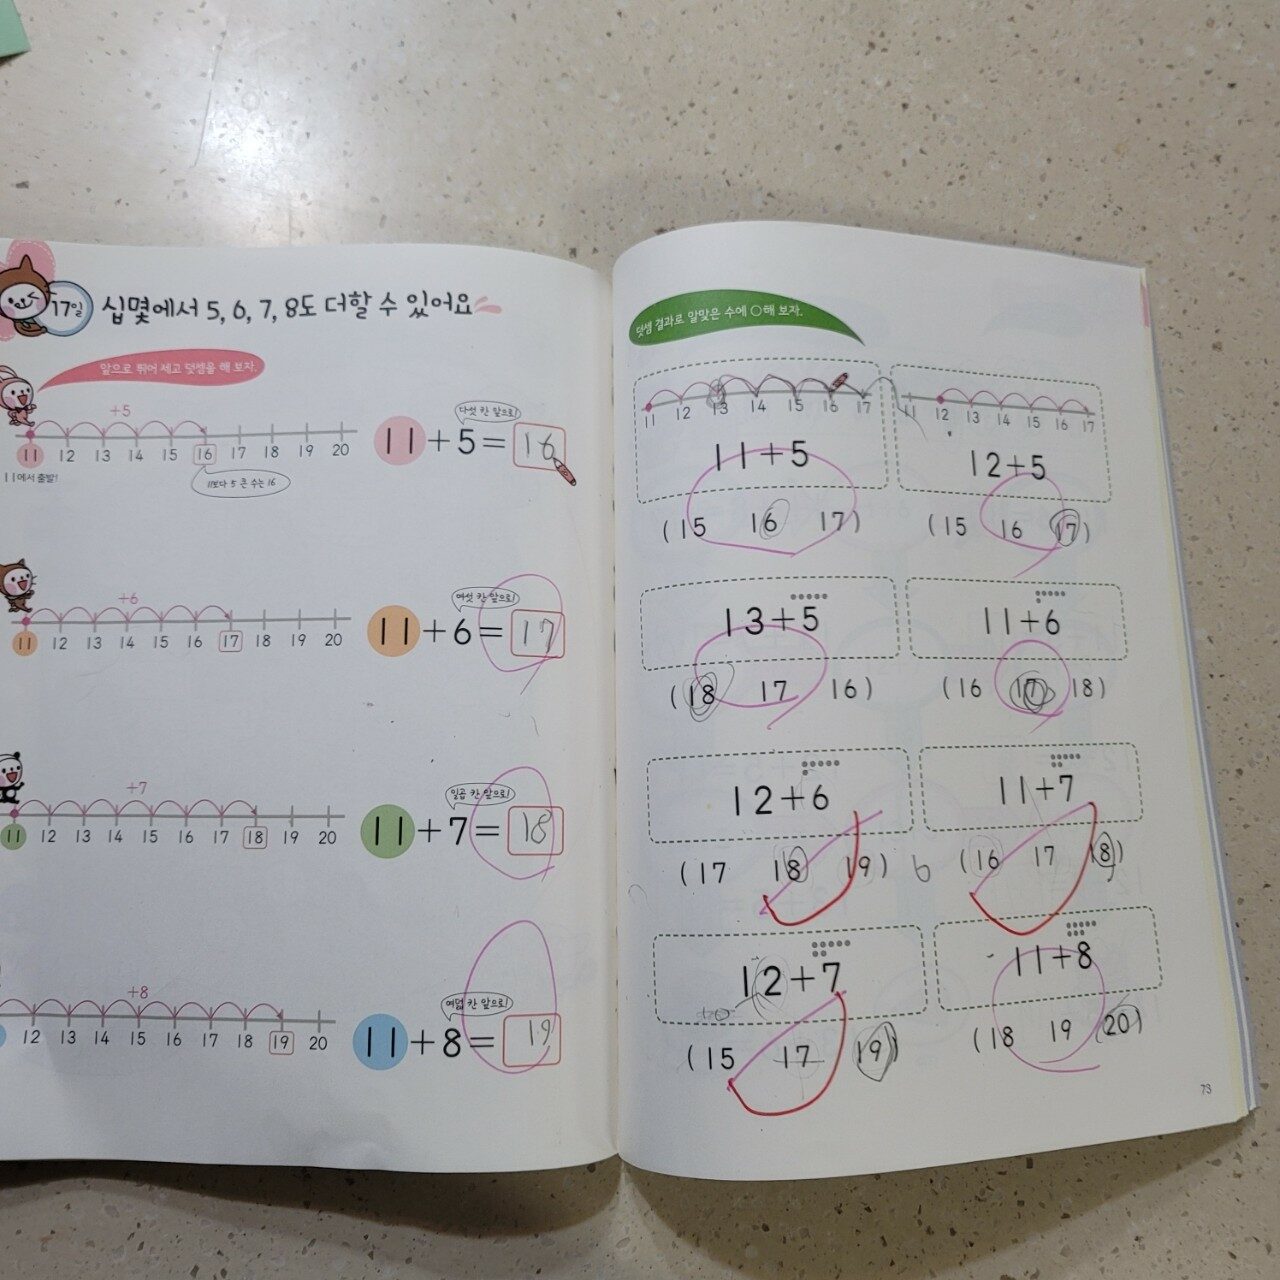 17일 십몇에서 5, 6, 7, 8도 더할 수 있어요
앞으로 뛰어 세고 덧셈을 해 보자.
+5
11 12 13 14 15 16 17 18 19 20
11에서 출발!
11보다 5 큰 수는 16
다섯 칸 앞으로!
11+5=16
+6
11 12 13 14 15 16 17 18 19 20
여섯 칸 앞으로!
11+6=17
+7
11 12 13 14 15 16 17 18 19 20
일곱 칸 앞으로!
11+7=18
+8
12 13 14 15 16 17 18 19 20
여덟 칸 앞으로!
11+8=19
덧셈 결과로 알맞은 수에 ○해 보자.
11 12 13 14 15 16 17
11+5
(15 16 17)
11 12 13 14 15 16 17
12+5
(15 16 17)
13+5
(18 17 16)
11+6
(16 17 18)
12+6
(17 18 19)
6
11+7
(16 17 18)
12+7
(15 17 19)
11+8
(18 19 20)
73